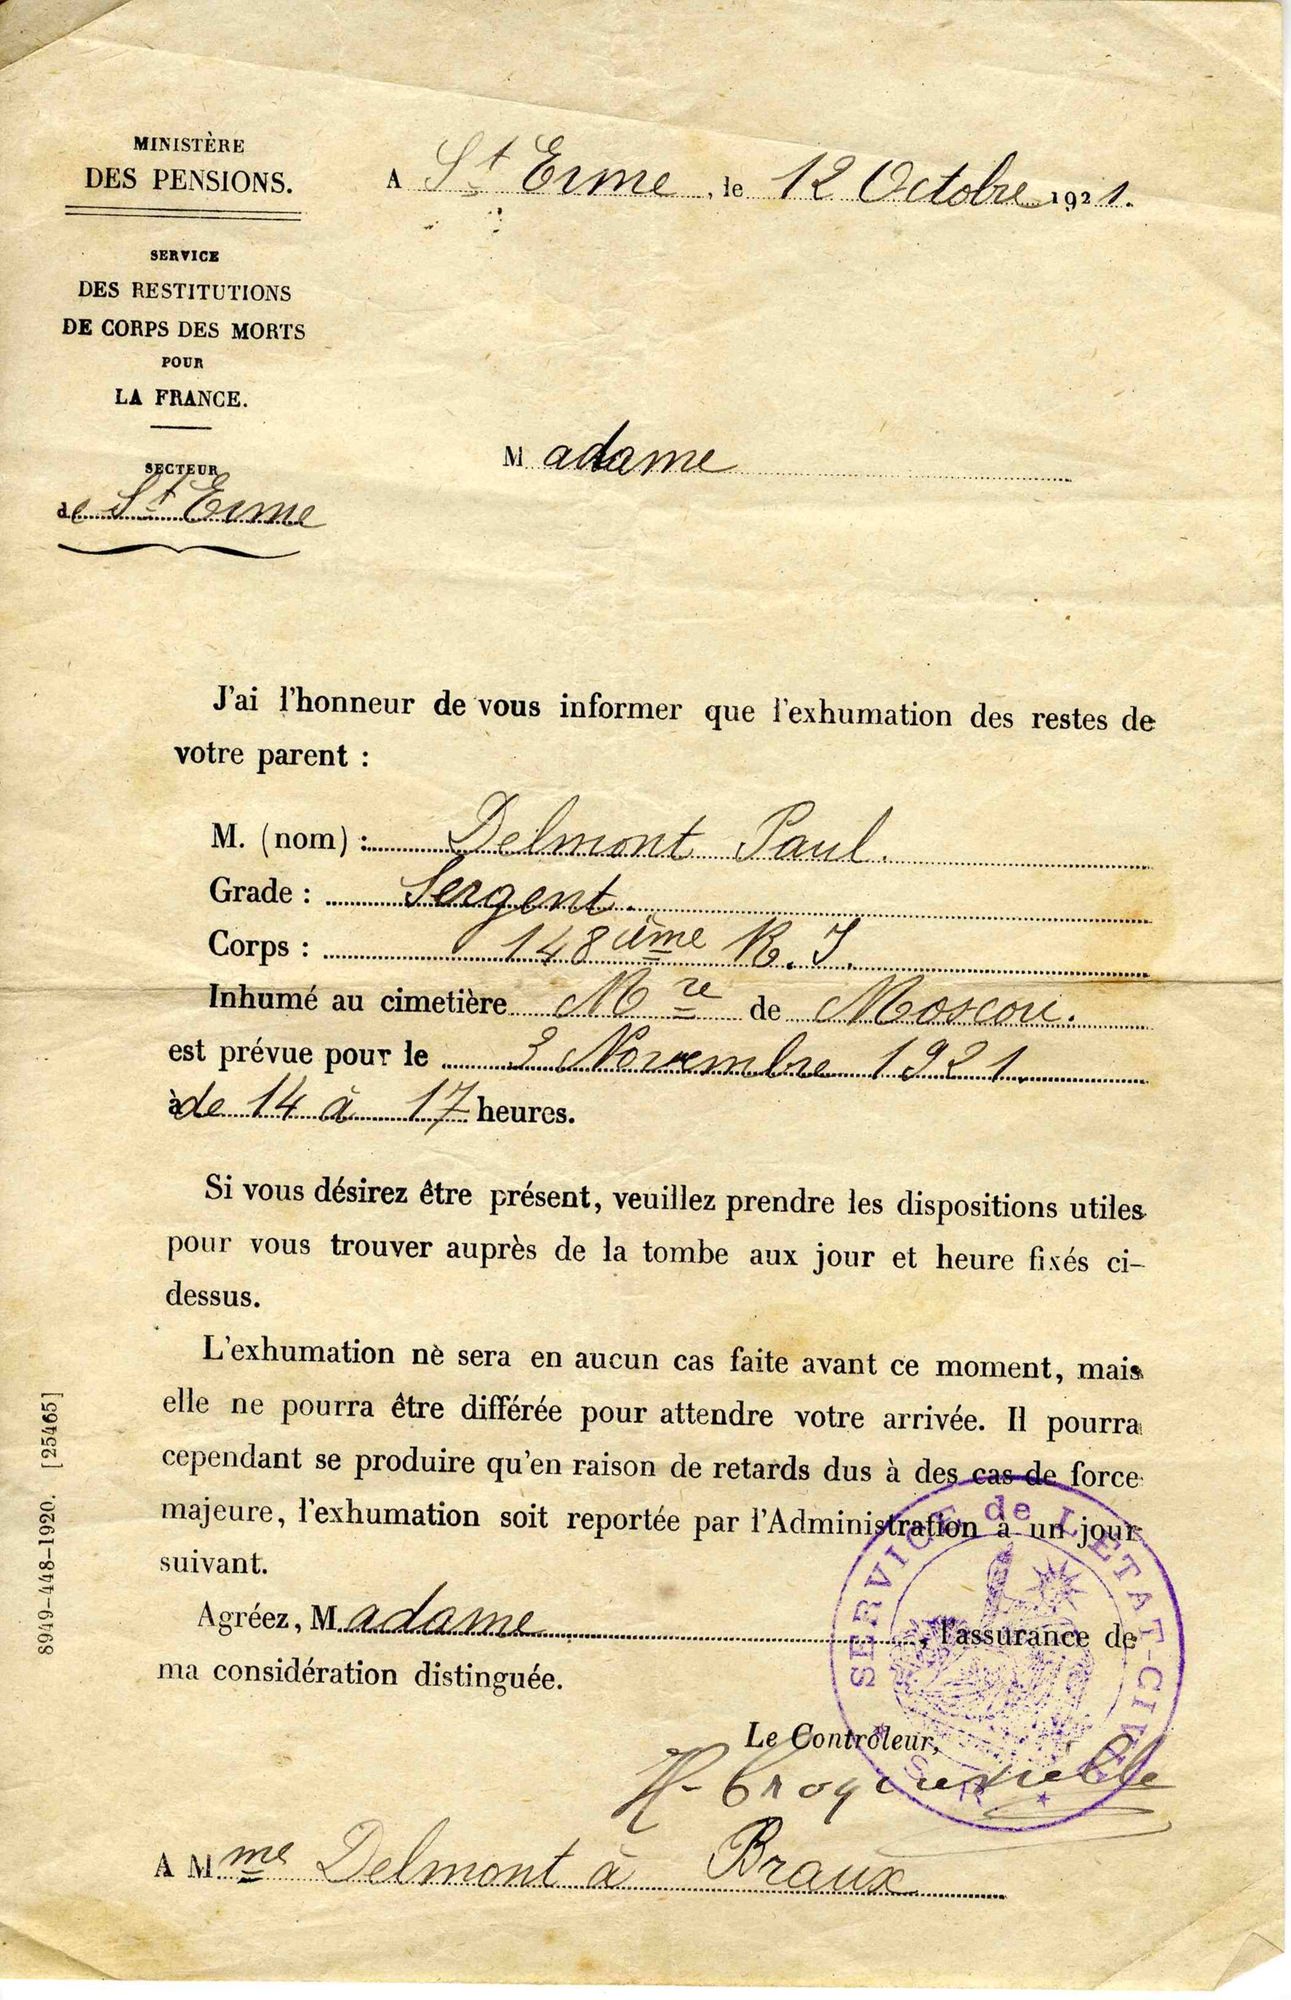 MINISTÈRE
DES PENSIONS.
SERVICE
DES RESTITUTIONS
DE CORPS DES MORTS
POUR
LA FRANCE.
SECTEUR
de St Erme
A St Erme, le 12 Octobre 1921.
Madame
J'ai l'honneur de vous informer que l'exhumation des restes de
votre parent :
M. (nom) : Delmont Paul.
Grade : Sergent.
Corps : 148ième R. I.
Inhumé au cimetière Mre de Moscou.
est prévue pour le 3 Novembre 1921.
à de 14 à 17 heures.
Si vous désirez être présent, veuillez prendre les dispositions utiles
pour vous trouver auprès de la tombe aux jour et heure fixés ci-
dessus.
L'exhumation nè sera en aucun cas faite avant ce moment, mais
elle ne pourra être différée pour attendre votre arrivée. Il pourra
cependant se produire qu'en raison de retards dus à des cas de force
majeure, l'exhumation soit reportée par l'Administration à un jour
suivant.
Agréez, Madame, l'assurance de
ma considération distinguée.
Le Contrôleur,
SERVICE de L'ETAT-CIVIL
A Mme Delmont à Braux
8949-448-1920. [25465]